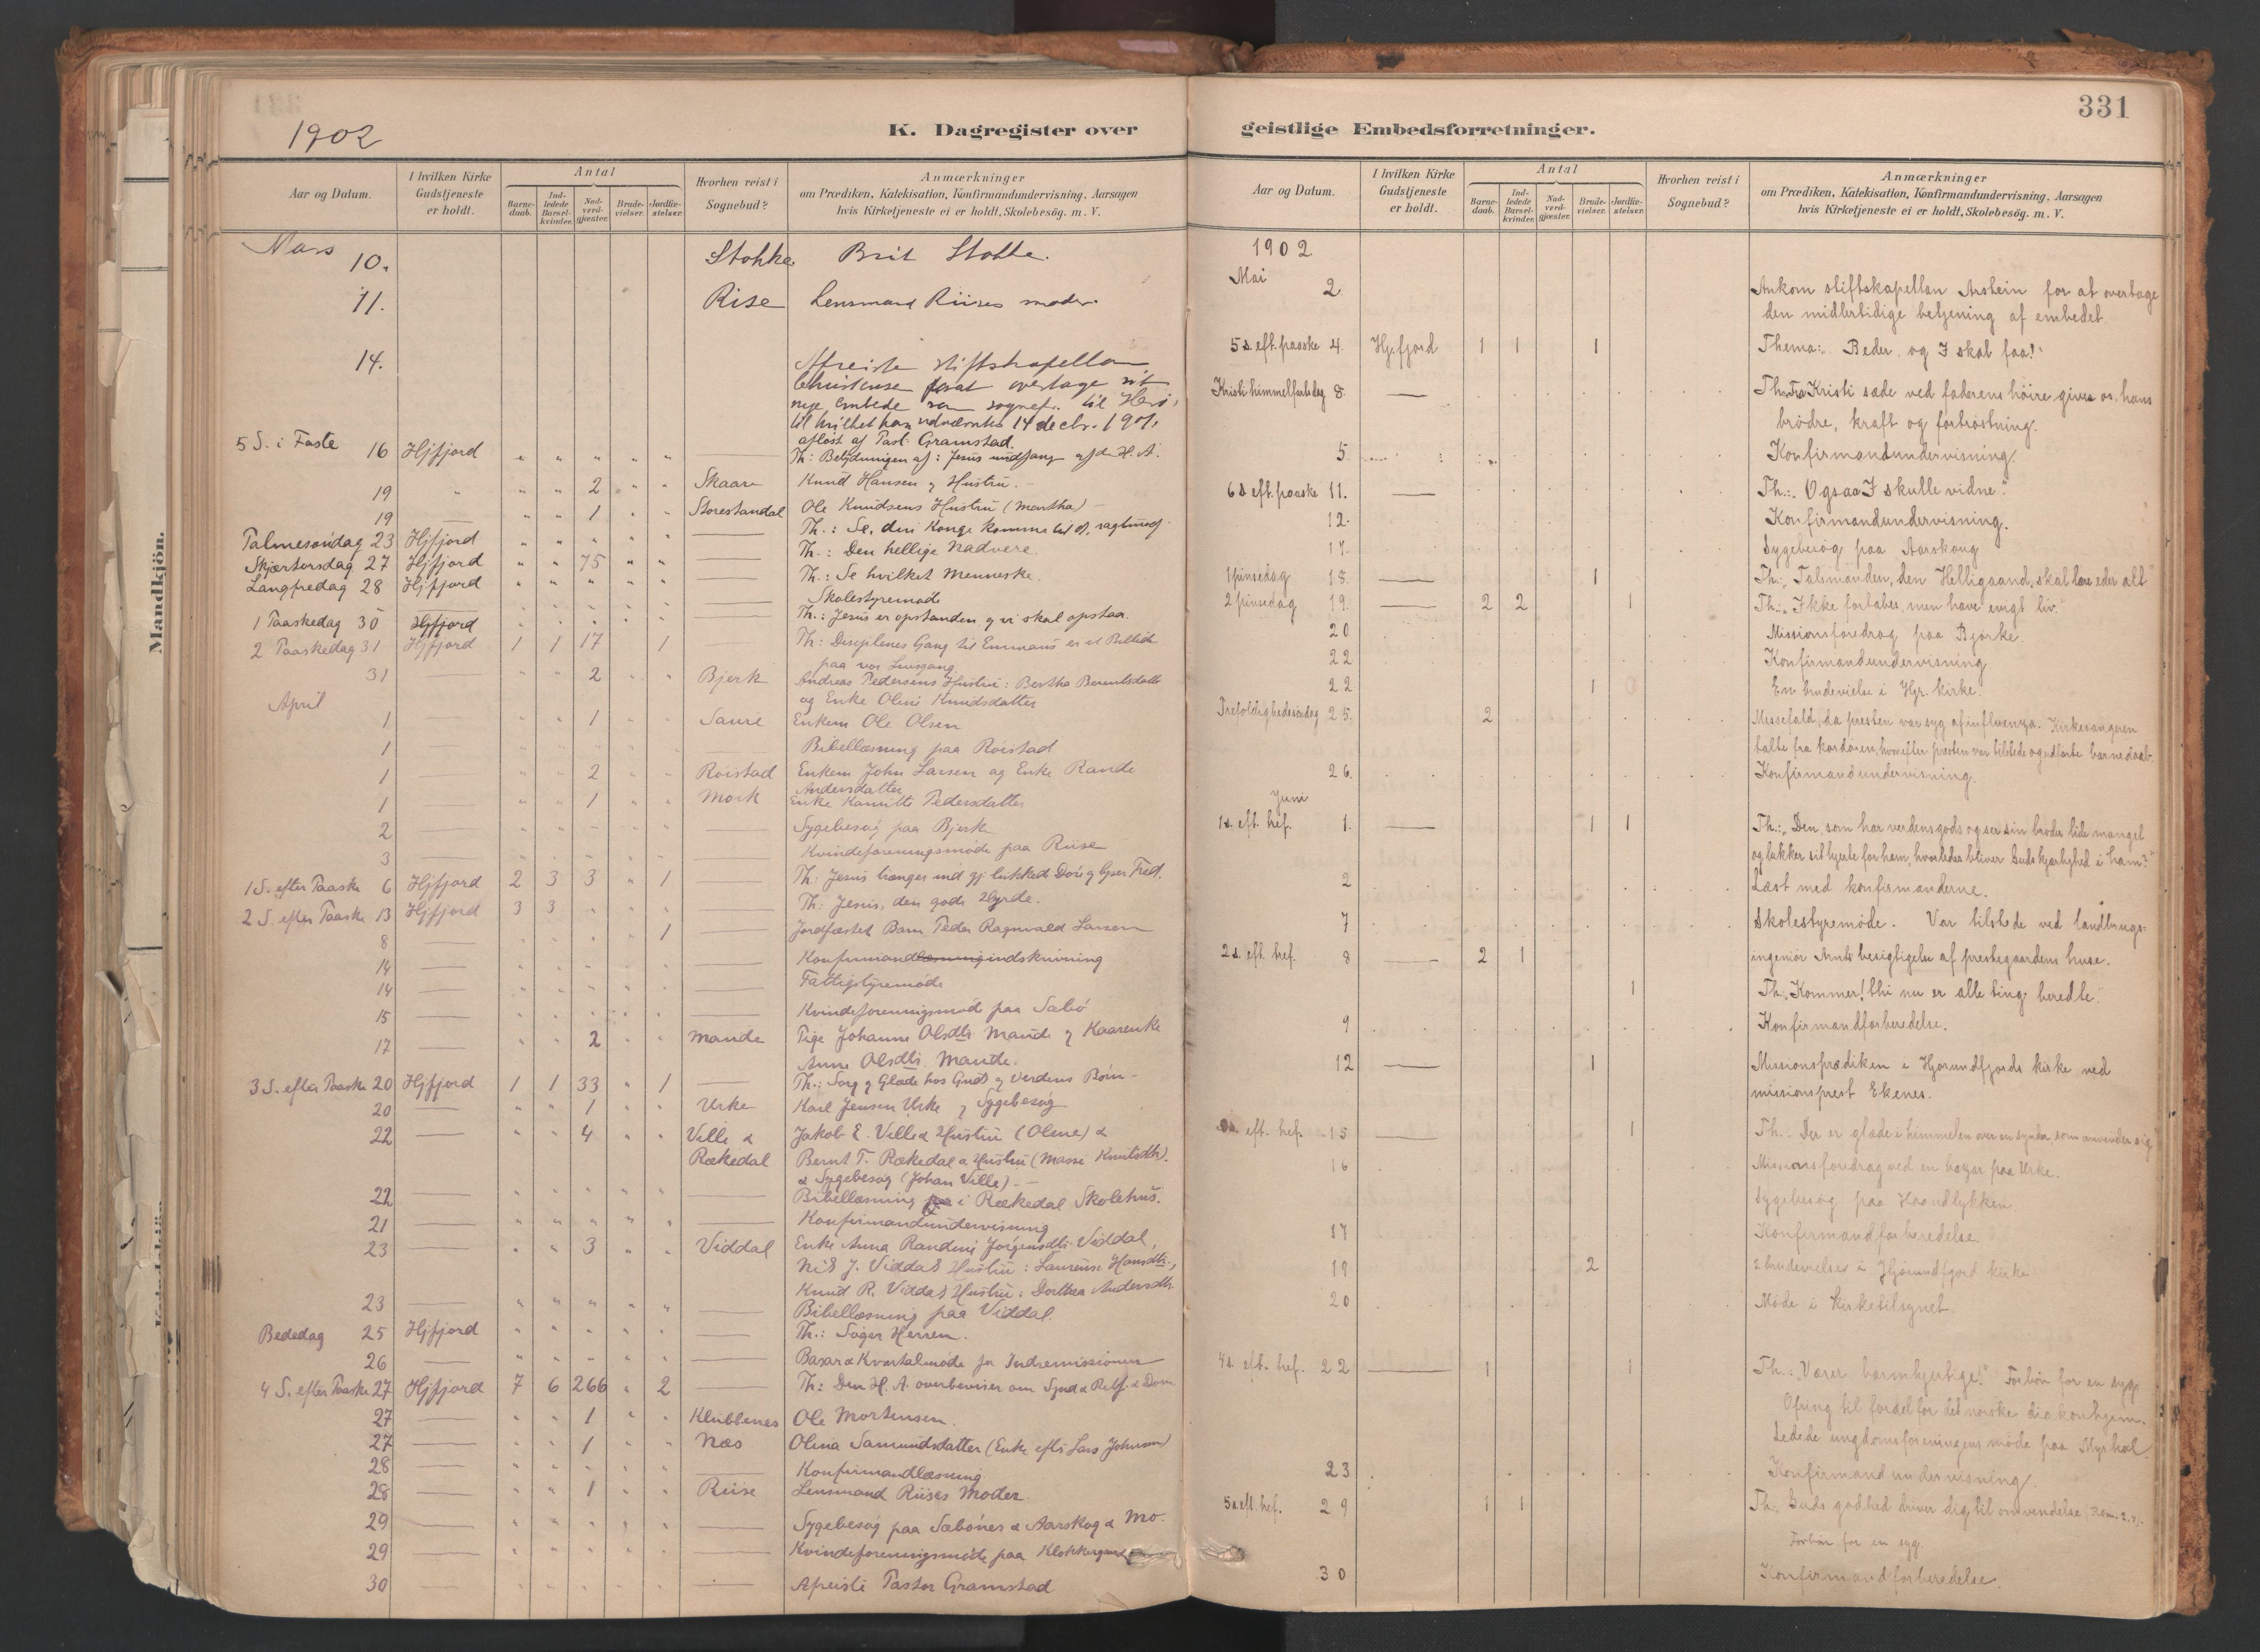 1902
K. Dagregister over
Aar og Datum.
I hvilken Kirke Gudstjeneste er holdt.
Antal
Barne-daab.
Ind-ledede Barsel-kvinder.
Nad-verd-gjæster.
Brude-vielser.
Jordfæ-stelser.
Hvorhen reist i Sognebud?
Anmærkninger
om Prædiken, Katekisation, Konfirmandundervisning, Aarsagen
hvis Kirketjeneste ei er holdt, Skolebesög. m. V.
Mars 10. Stokke Brit Stokke.
11. Riise Lensmand Riises moder.
14. Afreiste stiftskapellan
Christensen forat overtage sit
nye embede som sognepr. til Herö,
til hvilket han udnævntes 14 decbr. 1901,
aflöst af Past. Gramstad.
5 S. i Faste 16 Hjfjord " " " " " Th: Betydningen af: Jesus undfang. af d. H. A.
19 " " " 2 " " Skaare Knud Hansen & Hustru.
19 — " " 1 " " Storestandal Ole Knudsens Hustru (Martha)
Palmesöndag 23 Hjfjord " " " " " — Th.: Se, din Konge kommer til d, sagtmod.
Skjærtorsdag 27 Hjfjord " " 75 " " — Th.: Den hellige Nadvere.
Langfredag 28 Hjfjord " " " " " — Th.: Se hvilket Menneske.
Skolestyremöde
1 Paaskedag 30 Hjfjord " " " " " — Th.: Jesus er opstanden & vi skal opstaa.
2 Paaskedag 31 Hjfjord 1 1 17 1 — Th: Disciplenes Gang til Emmaus er et Billede
paa vor Livsgang
31 — " " 2 " " Bjerk Andreas Pedersens Hustru: Bertha Berentsdatter
og Enke Oline Knudsdatter
April
1 — " " 1 " " Saure Enkem Ole Olsen
1 — Bibellæsning paa Roistad
1 — " " 2 " " Roistad Enkem John Larsen og Enke Rande
Andersdatter
1 — " " 1 " " Mork Enke Kamilte Pedersdatter
2 — Sygebesög paa Bjerk
3 — Kvindeforeningsmöde paa Riise
1 S. efter Paaske 6 Hjfjord 2 3 3 " 1 — Th: Jesus trænger ind gj. lukkede Döre & lyser Fred.
2 S. efter Paaske 13 Hjfjord 3 3 " " " — Th: Jesus, den gode Hyrde.
8 — " " " " 1 — Jordfæstet Barn Peder Ragnvald Larsen
14 — Konfirmandlæsning indskrivning
14 — Fattigstyremöde
15 — Kvindeforeningsmöde paa Sæbö
17 — " " 2 " " Mande Pige Johanne Olsdtr. Mande & Kaarenke
Anne Olsdtr. Mande.
3 S. efter Paaske 20 Hjfjord 1 1 33 " 1 — Th.: Sorg & Glæde hos Guds & Verdens Börn
20 — " " 1 " " Urke Karl Jensen Urke & Sygebesög
22 — " " 4 " " Ville & Jakob E. Ville & Hustru (Oline) &
Rækedal Bernt T. Rækedal & Hustru (Massi Knutsdtr).
& Sygebesög (Johan Ville)
22 — Bibellæsning i Rækedal Skolehus.
21 — Konfirmandundervisning
23 — " " 3 " " Viddal Enke Anna Randine Jörgensdtr. Viddal,
Nils J. Viddals Hustru: Laurense Hansdtr.,
Knud R. Viddals Hustru: Dorthea Andersdtr.
23 — Bibellæsning paa Viddal.
Bededag 25 Hjfjord " " " " " — Th.: Söger Herren.
26 — Basar & Kvartalmöde for Indremissionen
4 S. efter Paaske 27 Hjfjord 7 6 266 " 2 — Th: Den H. A. overbeviser om Synd & Retf. & Dom
27 — " " 1 " " Klubbenes Ole Mortensen.
27 — " " 1 " " Næs Olina Samundsdatter (Enke eft. Lars Johnsen)
28 — Konfirmandlæsning
28 — " " 1 " " Riise Lensmand Riises Moder.
29 — Sygebesög paa Sæbönes & Aarskog & Mo.
29 — Kvindeforeningsmöde paa Klokkergaard
30 — Afreiste Pastor Gramstad
331
geistlige Embedsforretninger.
Aar og Datum.
I hvilken Kirke Gudstjeneste er holdt.
Antal
Barne-daab.
Ind-ledede Barsel-kvinder.
Nad-verd-gjæster.
Brude-vielser.
Jordfæ-stelser.
Hvorhen reist i Sognebud?
Anmærkninger
om Prædiken, Katekisation, Konfirmandundervisning, Aarsagen
hvis Kirketjeneste ei er holdt, Skolebesög. m. V.
1902
Mai 2 Ankom stiftskapellan Arstein for at overtage
den midlertidige betjening af embedet.
5 s. eft. paaske 4. Hjfjord 1 1 1 Thema: Beder og I skal faa!
Kristi himmelfartsdag 8. — Th. Fra Kristi sæde ved faderens höire gives os, hans
brödre, kraft og fortröstning.
5. Konfirmandundervisning.
6 s eft. paaske 11. — Th.: "Ogsaa I skulle vidne."
12. Konfirmandundervisning.
17. Sygebesög paa Aarskaug
1 pinsedag 18. — 1 Th: "Talsmanden, den Helligaand, skal lære eder alt"
2 pinsedag 19. — 2 2 1 Th: "Ikke fortabes, men have evigt liv."
20. Missionsforedrag paa Bjørke.
22 Konfirmandundervisning
22 1 En brudevielse i Hjr. kirke.
Trefoldighedssöndag 25. 2 Messefald, da presten var syg af influenza. Kirkesangeren
talte fra kordören, hvorefter presten var tilstede og udförte barnedaab.
26. Konfirmandundervisning.
Juni
1 s. eft. tref. 1. — 1 1 Th.: "Den, som har verdens gods og ser sin broder lide mangel
og lukker sit hjerte for ham, hvorledes bliver Guds kjærlighed i ham?"
2 Læst med konfirmanderne.
7 Skolestyremöde. Var tilstede ved landbrugs-
2 s. eft. tref. 8 — 2 1 ingeniör Arnts besigtigelse af prestegaardens huse.
1 Th: "Kommer! thi nu er alle ting beredte."
9 Konfirmandforberedelse.
12 1 Missionsprædiken i Hjörundfjords kirke ved
missionsprest Ekenes.
eft. tref. 15 — 1 Th.: Der er glæde i himmelen over en synder som omvender sig
16 Missionsforedrag ved en bazar paa Urke.
Sygebesög paa Haandlykken
17 Konfirmandforberedelse
19 2 2 brudevielser i Hjörundfjord kirke
20 Möde i Kirketilsynet.
4 s. eft. tref. 22 — 1 1 Th.: "Værer barmhjertige!" Forbön for en syg.
Ofring til fordel for det norske diakonhjem.
Ledede ungdomsforeningens möde paa Myrhol.
23 Konfirmandundervisning.
5 s eft. tref. 29 1 1 Th.: Guds godhed driver dig til omvendelse (Rom. 2,4).
Forbön for en syg.
30 Konfirmandforberedelse.